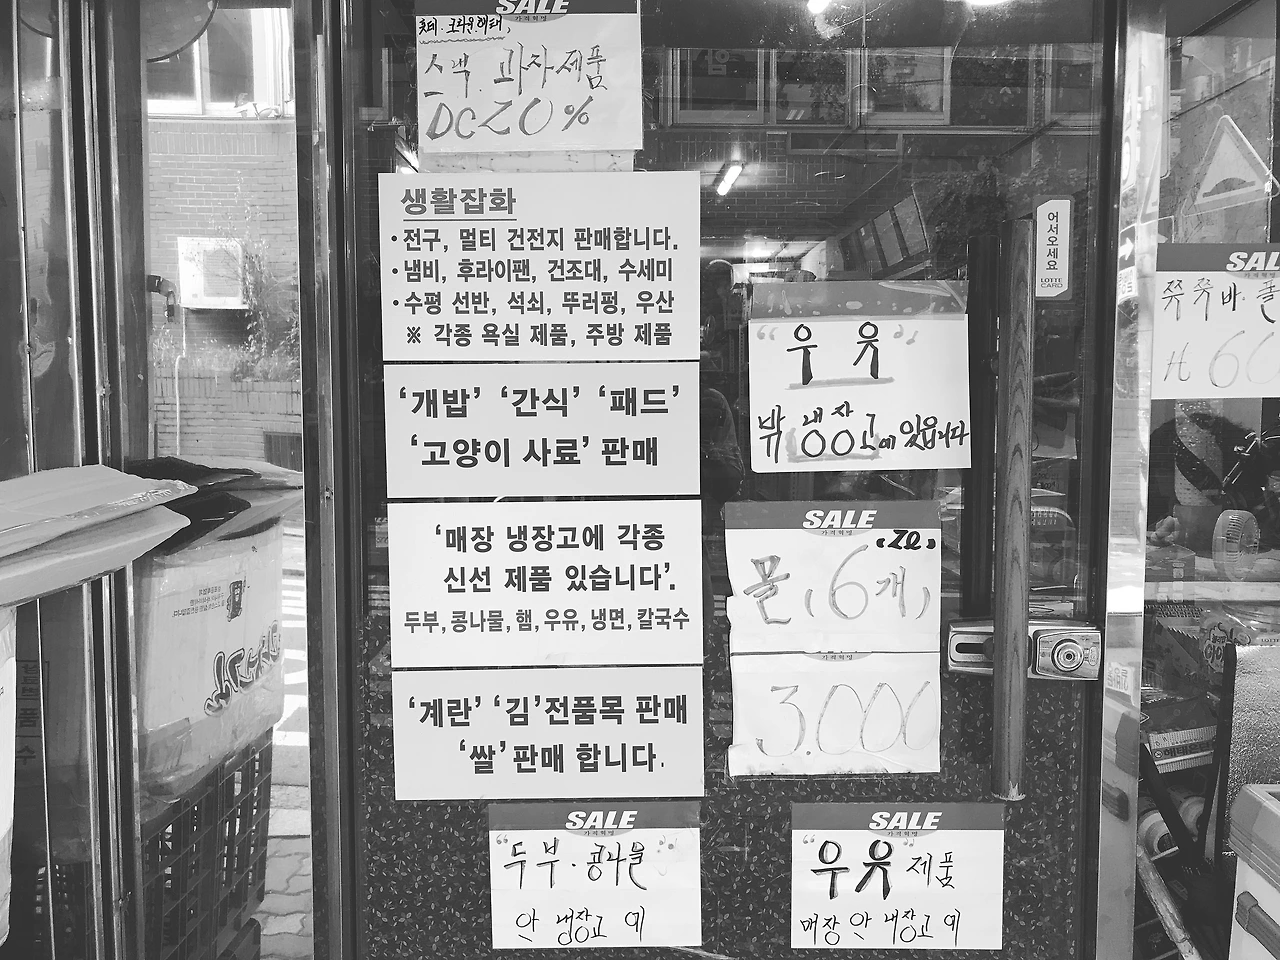 SALE
가격혁명
롯데.크라운.해태,
스낵. 과자제품
DC 20%
생활잡화
·전구, 멀티 건전지 판매합니다.
·냄비, 후라이팬, 건조대, 수세미
·수평 선반, 석쇠, 뚜러펑, 우산
※ 각종 욕실 제품, 주방 제품
‘개밥’ ‘간식’ ‘패드’
‘고양이 사료’ 판매
‘매장 냉장고에 각종
신선 제품 있습니다’.
두부, 콩나물, 햄, 우유, 냉면, 칼국수
‘계란’ ‘김’전품목 판매
‘쌀’판매 합니다.
SALE
가격혁명
“두부.콩나물”
안 냉장고에
어서오세요
LOTTE
CARD
“우유”
밖 냉장고에 있읍니다
SALE
가격혁명
(2ℓ)
물, (6개)
가격혁명
3.000
SALE
가격혁명
“우유” 제품
매장 안 냉장고에
SAL
쭈쭈바.폴